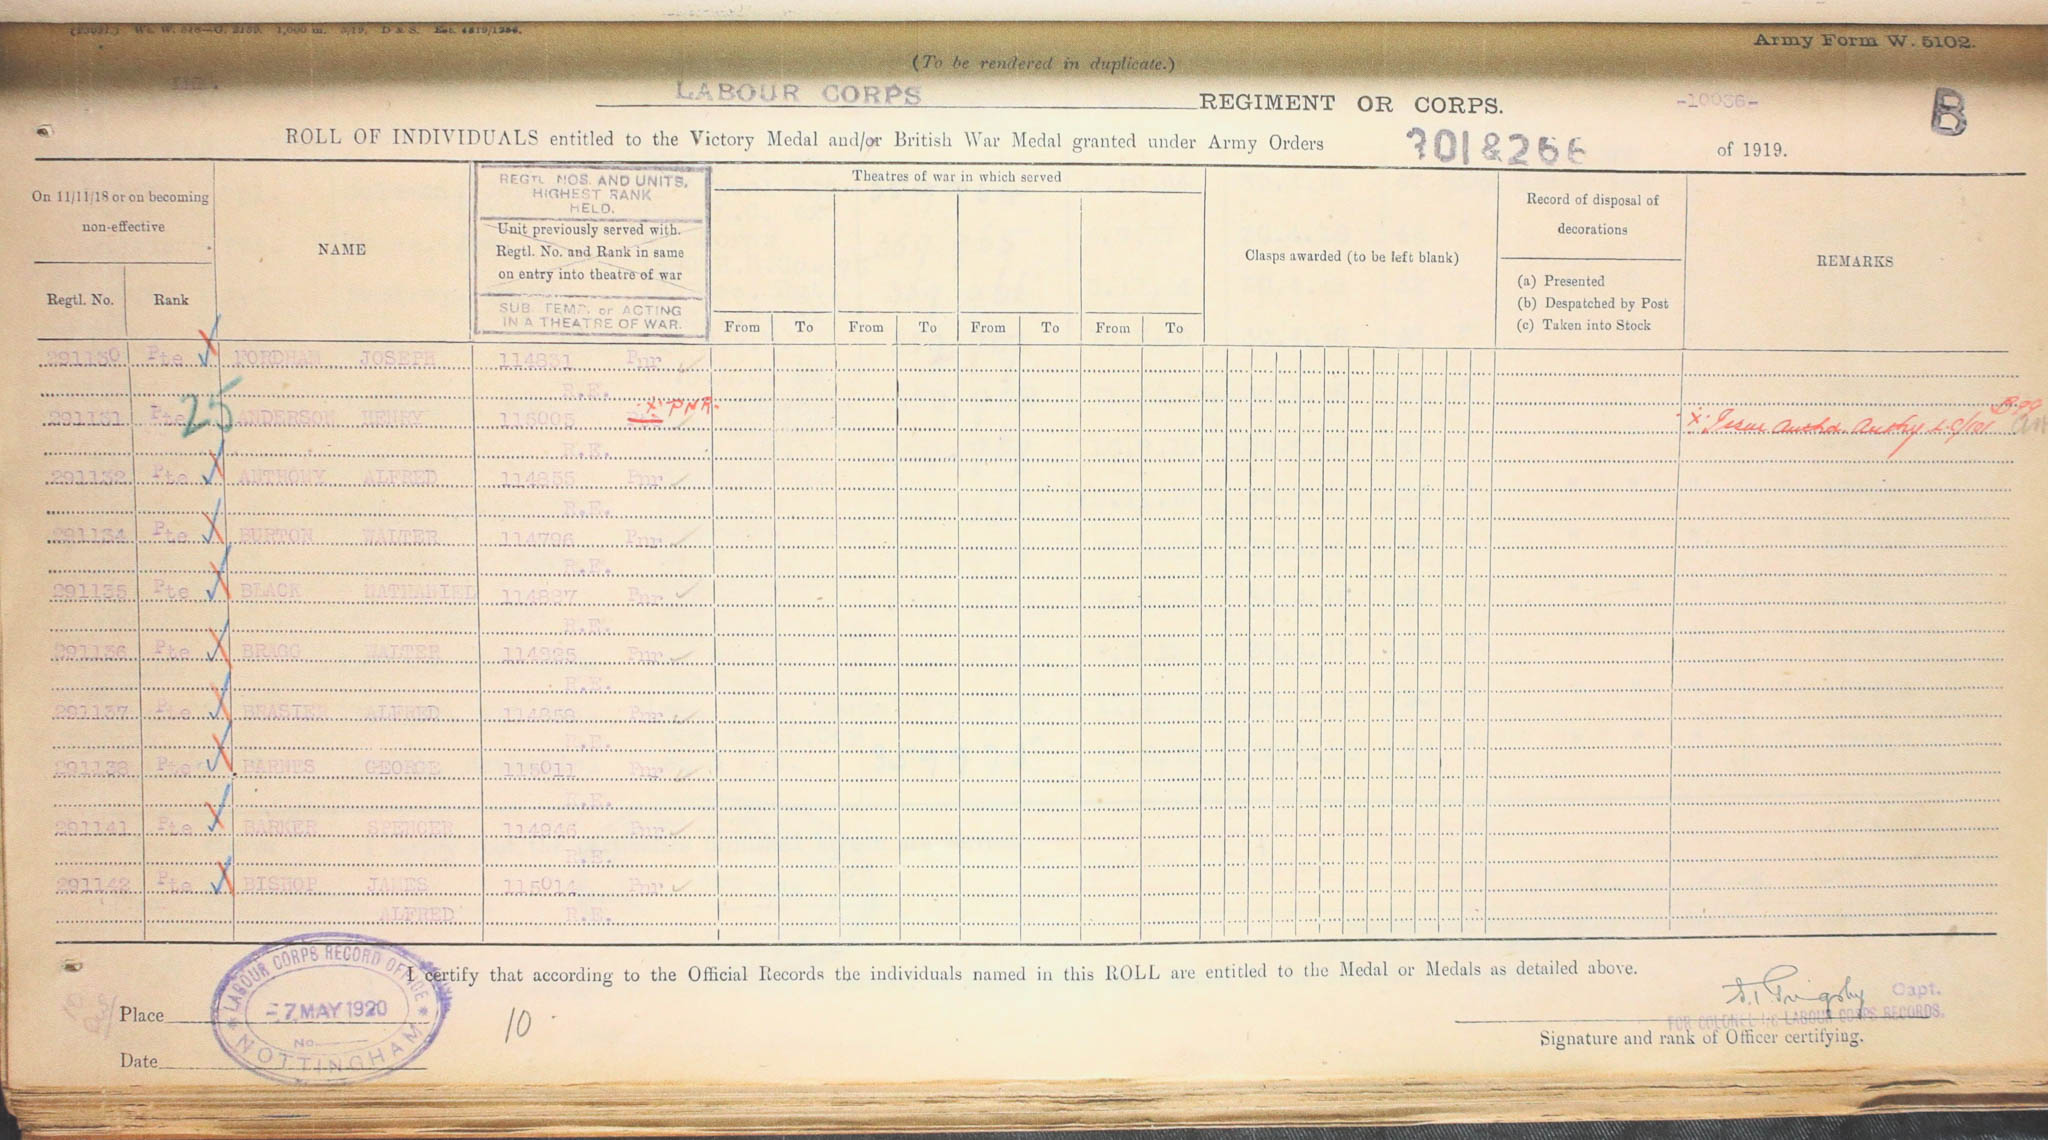 Army Form W. 5102.
(To be rendered in duplicate.)
LABOUR CORPS REGIMENT OR CORPS. -10036- B
ROLL OF INDIVIDUALS entitled to the Victory Medal and/or British War Medal granted under Army Orders 301 & 266 of 1919.
On 11/11/18 or on becoming non-effective
Regtl. No. Rank
NAME
REGTL NOS. AND UNITS,
HIGHEST RANK
HELD.
Unit previously served with.
Regtl. No. and Rank in same
on entry into theatre of war
SUB. TEMP. or ACTING
IN A THEATRE OF WAR.
Theatres of war in which served
From To From To From To From To
Clasps awarded (to be left blank)
Record of disposal of
decorations
(a) Presented
(b) Despatched by Post
(c) Taken into Stock
REMARKS
291130 Pte FORDHAM JOSEPH 114831 Pnr
R.E.
25
291131 Pte ANDERSON HENRY 115005 X PNR.
X Issue Authd. Authy L.C/101 B.99
R.E.
291132 Pte ANTHONY ALFRED 114855 Pnr
R.E.
291134 Pte BURTON WALTER 114796 Pnr
R.E.
291135 Pte BLACK NATHANIEL 114887 Pnr
R.E.
291136 Pte BRAGG WALTER Pnr
R.E.
291137 Pte ALFRED 114858 Pnr
R.E.
291138 Pte BARNES GEORGE 115011 Pnr
R.E.
291141 Pte BARKER SPENCER 114846 Pnr
R.E.
291142 Pte BISHOP JAMES 115014 Pnr
ALFRED R.E.
I certify that according to the Official Records the individuals named in this ROLL are entitled to the Medal or Medals as detailed above.
LABOUR CORPS RECORD OFFICE
-7 MAY 1920
No.
NOTTINGHAM
Place
Date
10
Capt.
FOR COLONEL I/C LABOUR CORPS RECORDS.
Signature and rank of Officer certifying.